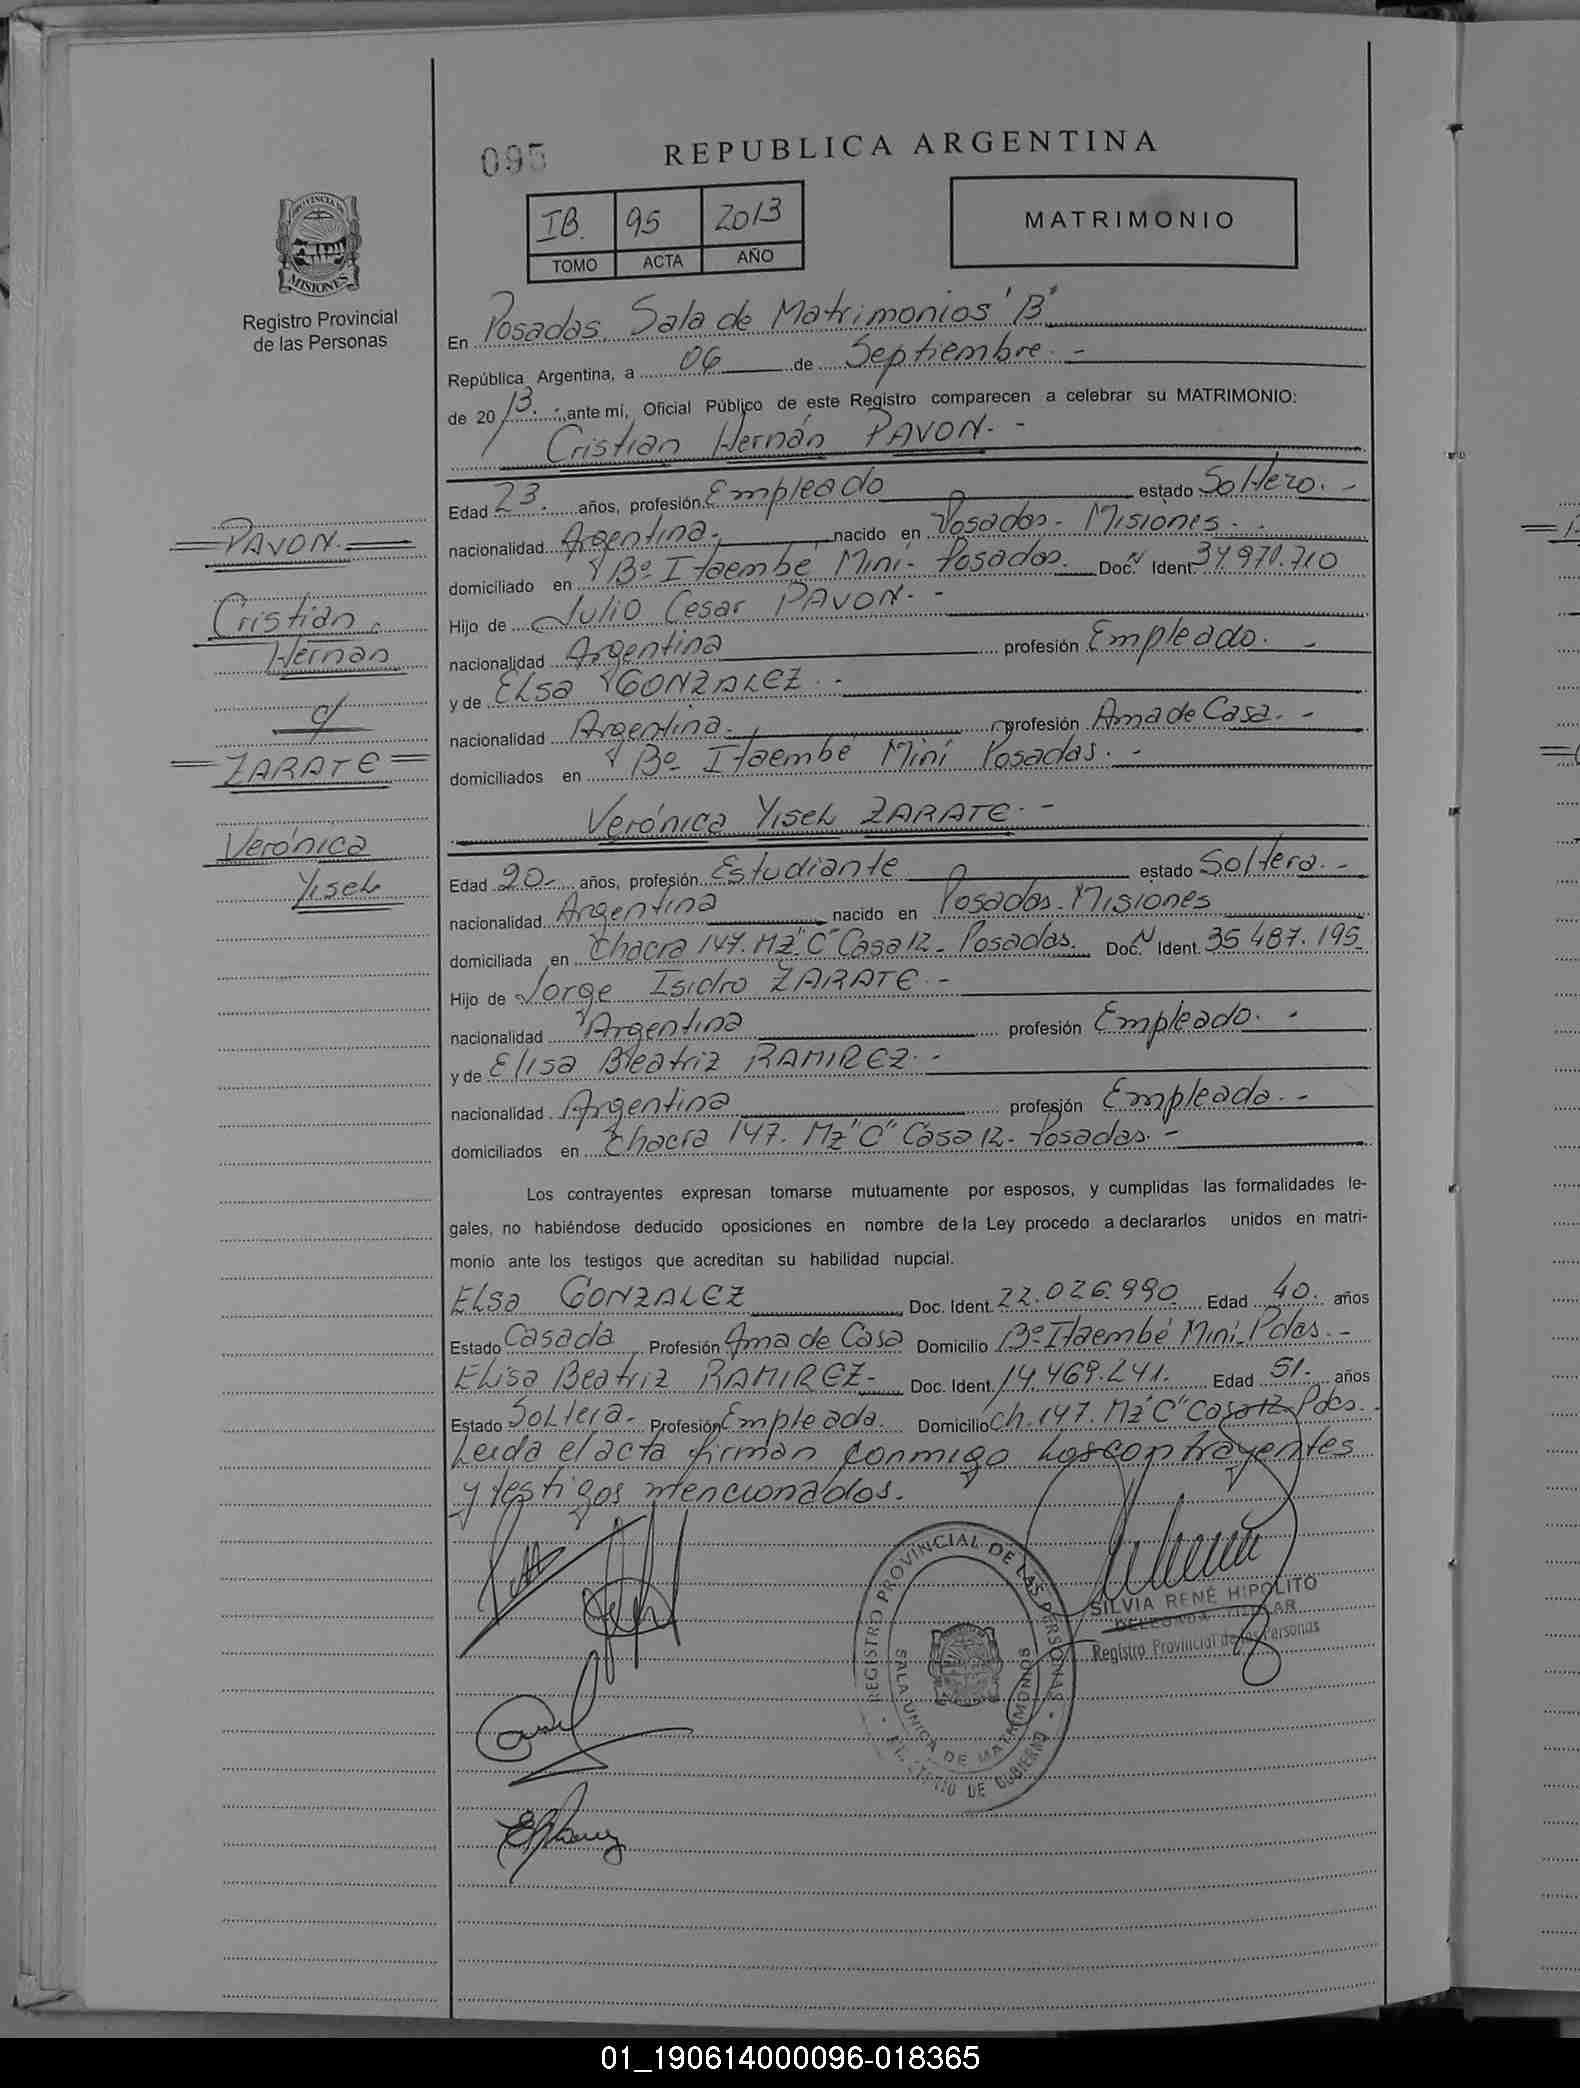 095
REPUBLICA ARGENTINA
IB. 95 2013
TOMO ACTA AÑO
MATRIMONIO
PROVINCIA DE
MISIONES
Registro Provincial
de las Personas
En Posadas. Sala de Matrimonios "B"
República Argentina, a 06 de Septiembre. -
de 2013. - ante mí, Oficial Público de este Registro comparecen a celebrar su MATRIMONIO:
Cristian Hernán PAVON. -
Edad 23. años, profesión Empleado estado Soltero. -
nacionalidad Argentina. nacido en Posadas - Misiones. -
domiciliado en Bº Itaembé Mini - Posadas. Doc. N Ident. 34.970.710
Hijo de Julio Cesar PAVON. -
nacionalidad Argentina profesión Empleado. -
y de Elsa GONZALEZ. -
nacionalidad Argentina. profesión Ama de Casa. -
domiciliados en Bº Itaembé Mini Posadas. -
Verónica Yisel ZARATE. -
Edad 20.- años, profesión Estudiante estado Soltera. -
nacionalidad Argentina nacido en Posadas - Misiones
domiciliada en Chacra 147. Mz "C" Casa 12 - Posadas. Doc. N Ident. 35.487.195
Hijo de Jorge Isidro ZARATE. -
nacionalidad Argentina profesión Empleado. -
y de Elisa Beatriz RAMIREZ. -
nacionalidad Argentina profesión Empleada. -
domiciliados en Chacra 147. Mz "C" Casa 12 - Posadas. -
Los contrayentes expresan tomarse mutuamente por esposos, y cumplidas las formalidades le-
gales, no habiéndose deducido oposiciones en nombre de la Ley procedo a declararlos unidos en matri-
monio ante los testigos que acreditan su habilidad nupcial.
Elsa GONZALEZ Doc. Ident. 22.026.990 Edad 40. años
Estado Casada Profesión Ama de Casa Domicilio Bº Itaembé Mini - Pdas. -
Elisa Beatriz RAMIREZ - Doc. Ident. 14.469.241. Edad 51. años
Estado Soltera. Profesión Empleada. Domicilio Ch. 147. Mz "C" Casa 12 Pdas. -
Leida el acta firman conmigo los contrayentes
y testigos mencionados.
PAVON.
Cristian
Hernan
c/
ZARATE
Verónica
Yisel
REGISTRO PROVINCIAL DE LAS PERSONAS
SALA UNICA DE MATRIMONIOS
DE GOBIERNO
SILVIA RENÉ HIPOLITO
DELEGADA TITULAR
Registro Provincial de las Personas
01_190614000096-018365